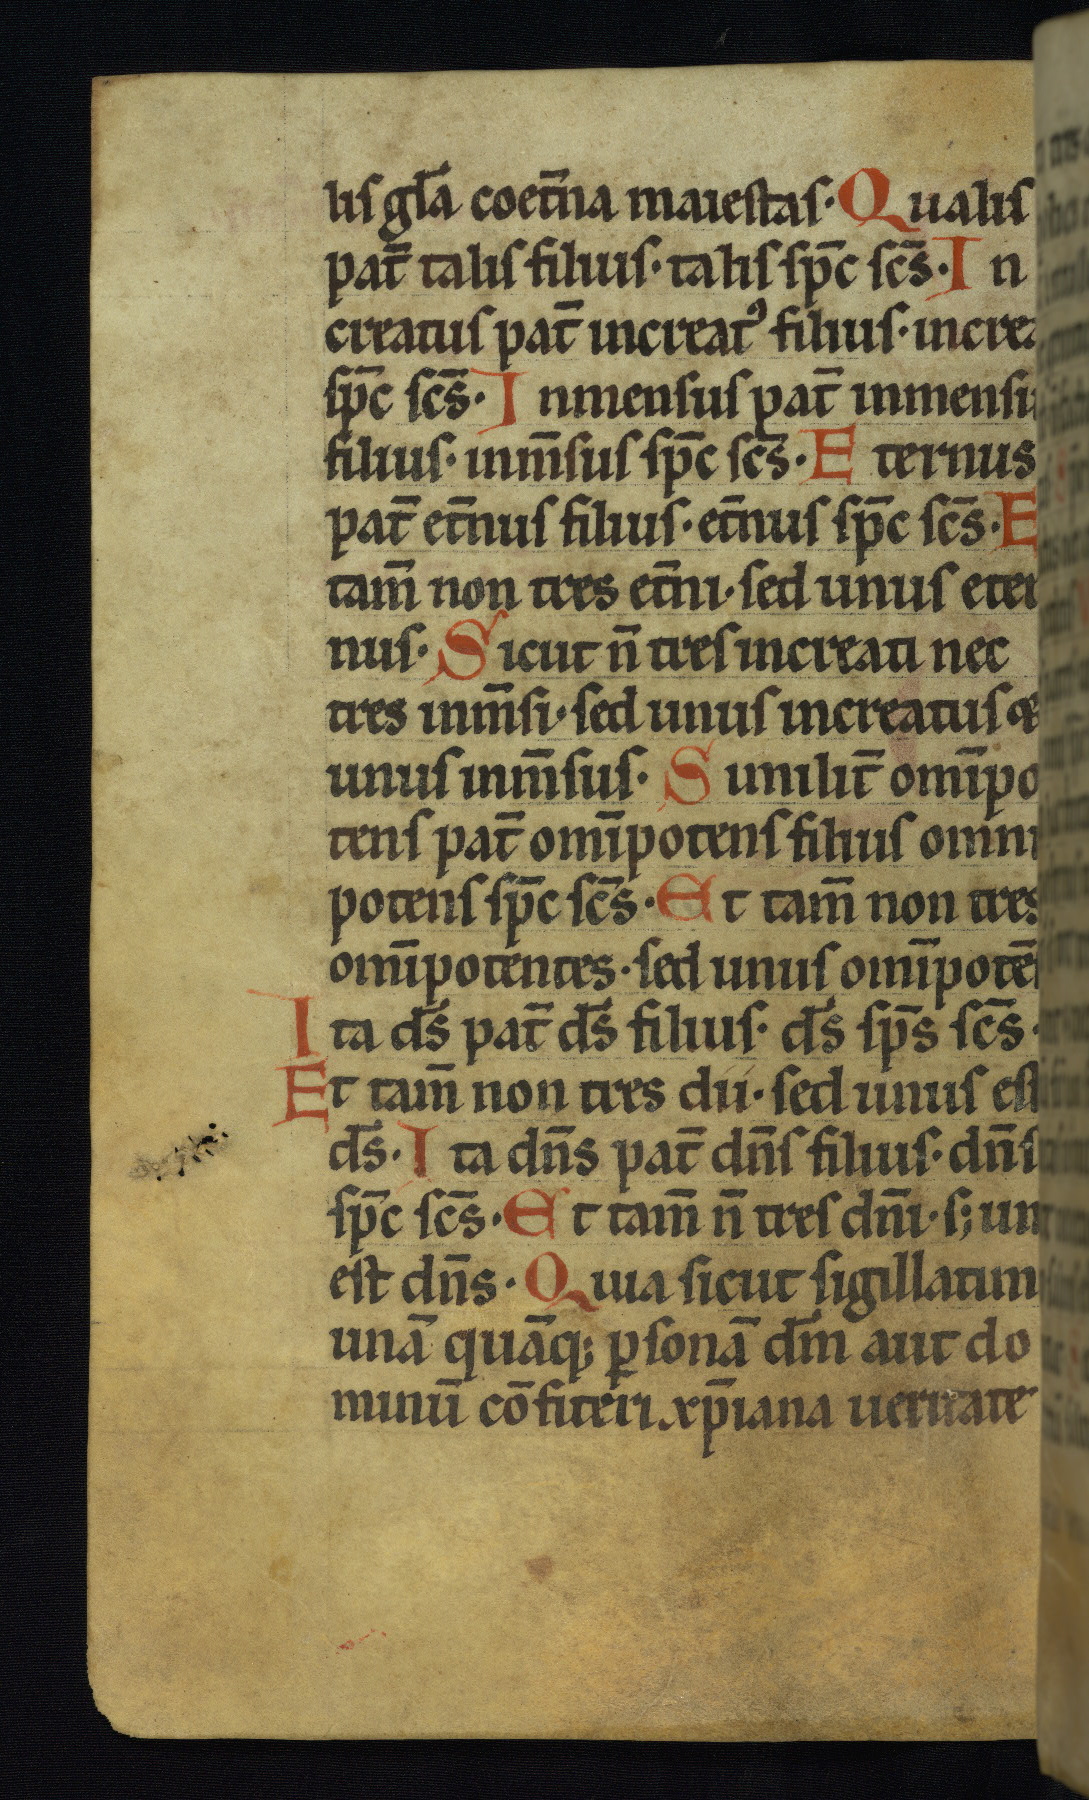 lis gl̄a coet̄na maiestas· Qualis
pat̄ talis filius· talis sp̄c sc̄s· In
creatus pat̄ increatꝰ filius· increa
sp̄c sc̄s· Inmensus pat̄ inmensu
filius· inm̄sus sp̄c sc̄s· Eternus
pat̄ et̄nus filius· et̄nus sp̄c sc̄s· E
tam̄ non tres et̄ni· sed unus eter
nus· Sicut n̄ tres increati nec
tres inm̄si· sed unus increatus &
unus inm̄sus· Similit̄ omīpo
tens pat̄ omīpotens filius omni
potens sp̄c sc̄s· Et tam̄ non tres
omīpotentes· sed unus omīpotē
Ita d̄s pat̄ d̄s filius· d̄s sp̄s sc̄s·
Et tam̄ non tres dii· sed unus est
d̄s· Ita dn̄s pat̄ dn̄s filius· dn̄s
sp̄c sc̄s· Et tam̄ n̄ tres dn̄i· s; un
est dn̄s· Quia sicut sigillatim
unā quāq; ꝑsonā d̄m aut do
minū cōfiteri xp̄iana ueritate